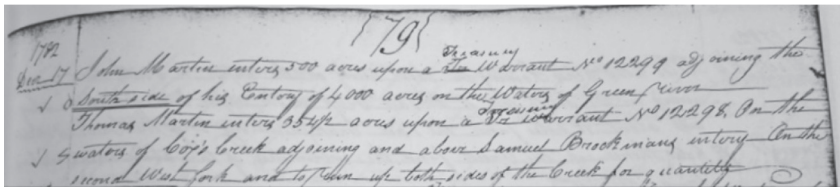 {79}
1782
Dec 17 John Martin enters 500 acres upon a Treasury Warrant No 12299 adjoining the
South side of his Entery of 4000 acres on the Waters of Green river
Thomas Martin enters 354½ acres upon a Treasury Warrant No 12298 On the
waters of Cox's Creek adjoining and above Samuel Brookmans entery On the
second West fork and to run up both sides of the Creek for quantity